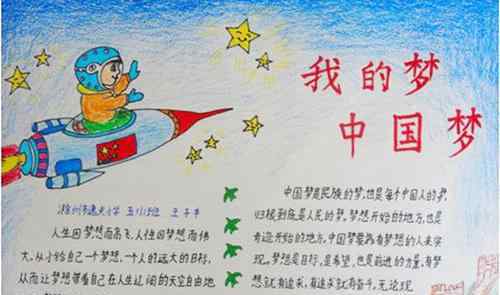 我的梦
中国梦
小学 五(1)班
人生因梦想而高飞,人性因梦想而伟
大。从小给自己一个梦想,一个人的远大的目标,
从而让梦想带着自己在人生辽阔的天空自由地
中国梦是民族的梦,也是每个中国人的梦,
归根到底是人民的梦。梦想开始的地方,也是
奇迹开始的地方。中国梦需有梦想的人来实
现。梦想是目标,是希望,也是前进的力量,有梦
想就有追求,有追求就有奋斗。无论现